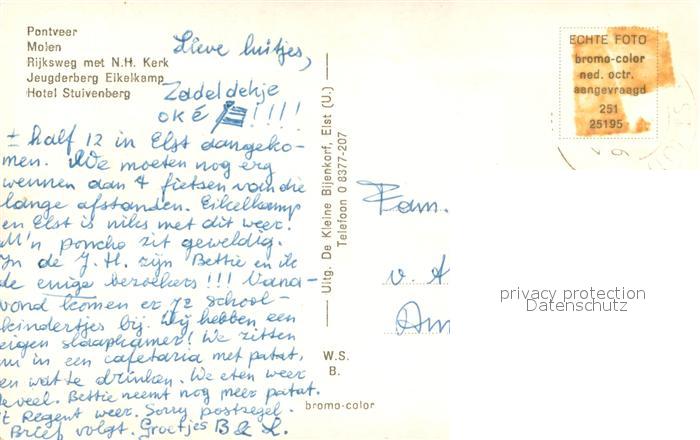 Pontveer
Molen
Rijksweg met N.H. Kerk
Jeugderberg Eikelkamp
Hotel Stuivenberg
Lieve luitjes,
Zadeldekje
oké !!!!
± half 12 in Elst aangeko-
men. We moeten nog erg
wennen aan 't fietsen van die
lange afstanden. Eikelkamp
en Elst is niks met dit weer.
M'n poncho zit geweldig.
In de J.H. zijn Bettie en ik
de enige bezoekers!!! Vana-
vond komen er 72 school-
kindertjes bij. Wij hebben een
eigen slaapkamer! We zitten
nu in een cafetaria met patat,
en wat te drinken. We eten weer
teveel. Bettie neemt nog meer patat.
't Regent weer. Sorry postzegel.
Brief volgt. Groetjes B & L.
Uitg. De Kleine Bijenkorf, Elst (U.)
Telefoon 0 8377-207
W.S.
B.
bromo-color
ECHTE FOTO
bromo-color
ned. octr.
aangevraagd
251
25195
Fam.
v. A
Am
privacy protection
Datenschutz